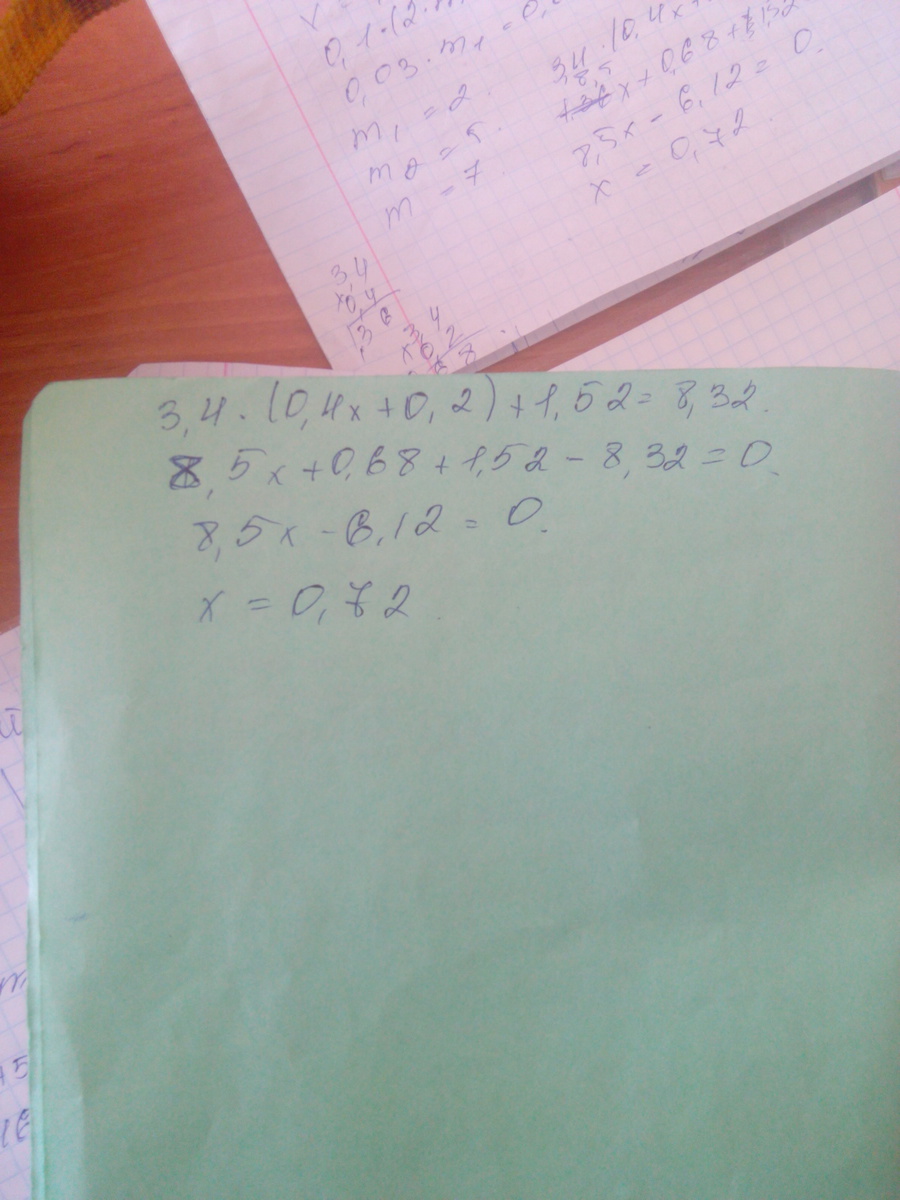 0,1·(2·m
0,03·m1 = 0,
m1 = 2.
m2 = 5.
m = 7.
3,4·(0,4x+
8,5
x+0,68+1,52
8,5x - 6,12 = 0.
x = 0,72.
3,4
x0,4
3,4·(0,4x+0,2)+1,52=8,32.
8,5x+0,68+1,52-8,32=0.
8,5x-6,12=0.
x=0,72.